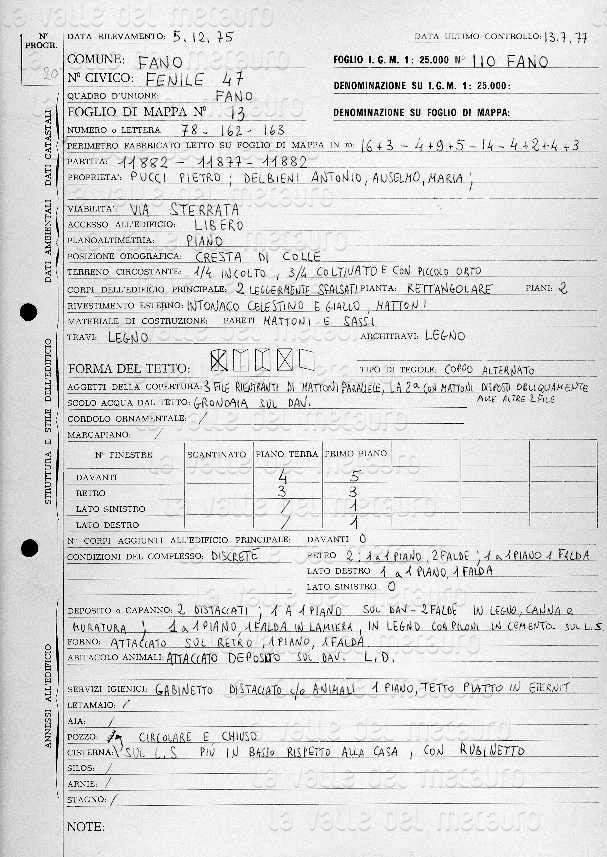 Nº PROGR. 20
DATA RILEVAMENTO: 5.12.75 DATA ULTIMO CONTROLLO: 13.7.77
COMUNE: FANO FOGLIO I.G.M. 1: 25.000 Nº 110 FANO
Nº CIVICO: FENILE 47 DENOMINAZIONE SU I.G.M. 1: 25.000:
QUADRO D'UNIONE: FANO
FOGLIO DI MAPPA Nº 13 DENOMINAZIONE SU FOGLIO DI MAPPA:
NUMERO o LETTERA 78 - 162 - 163
PERIMETRO FABBRICATO LETTO SU FOGLIO DI MAPPA IN m: 16+3-4+9+5-14-4+2+4+3
PARTITA: 11882 - 11877 - 11882
PROPRIETA': PUCCI PIETRO; DELBIENI ANTONIO, AUSELMO, MARIA;
VIABILITA': VIA STERRATA
ACCESSO ALL'EDIFICIO: LIBERO
PLANOALTIMETRIA: PIANO
POSIZIONE OROGRAFICA: CRESTA DI COLLE
TERRENO CIRCOSTANTE: 1/4 INCOLTO, 3/4 COLTIVATO E CON PICCOLO ORTO
CORPI DELL'EDIFICIO PRINCIPALE: 2 LEGGERMENTE SFALSATI PIANTA: RETTANGOLARE PIANI: 2
RIVESTIMENTO ESTERNO: INTONACO CELESTINO E GIALLO, MATTONI
MATERIALE DI COSTRUZIONE: PARETI MATTONI E SASSI
TRAVI: LEGNO ARCHITRAVI: LEGNO
FORMA DEL TETTO: TIPO DI TEGOLE: COPPO ALTERNATO
AGGETTI DELLA COPERTURA: 3 FILE RIENTRANTI DI MATTONI PARALLELE, LA 2ª CON MATTONI DISPOSTI OBLIQUAMENTE ALLE ALTRE 2 FILE
SCOLO ACQUA DAL TETTO: GRONDAIA SUL DAV.
CORDOLO ORNAMENTALE: /
MARCAPIANO: /
Nº FINESTRE SCANTINATO PIANO TERRA PRIMO PIANO
DAVANTI 4 5
RETRO 3 3
LATO SINISTRO / 1
LATO DESTRO / 1
Nº CORPI AGGIUNTI ALL'EDIFICIO PRINCIPALE: DAVANTI 0
CONDIZIONI DEL COMPLESSO: DISCRETE RETRO 2; 1 a 1 PIANO, 2 FALDE; 1 a 1 PIANO 1 FALDA
LATO DESTRO 1 a 1 PIANO, 1 FALDA
LATO SINISTRO 0
DEPOSITO o CAPANNO: 2 DISTACCATI; 1 A 1 PIANO SUL DAV- 2 FALDE IN LEGNO, CANNA e
MURATURA; 1 a 1 PIANO, 1 FALDA IN LAMIERA, IN LEGNO CON PILONI IN CEMENTO SUL L.S.
FORNO: ATTACCATO SUL RETRO, 1 PIANO, 1 FALDA
ABITACOLO ANIMALI: ATTACCATO DEPOSITO SUL DAV. L.D.
SERVIZI IGIENICI: GABINETTO DISTACCATO c/o ANIMALI 1 PIANO, TETTO PIATTO IN ETERNIT
LETAMAIO: /
AIA: /
POZZO: CIRCOLARE E CHIUSO
CISTERNA: SUL L.S PIÙ IN BASSO RISPETTO ALLA CASA, CON RUBINETTO
SILOS: /
ARNIE: /
STAGNO: /
NOTE:
DATI CATASTALI
DATI AMBIENTALI
STRUTTURA E STILE DELL'EDIFICIO
ANNESSI ALL'EDIFICIO
la valle del metauro